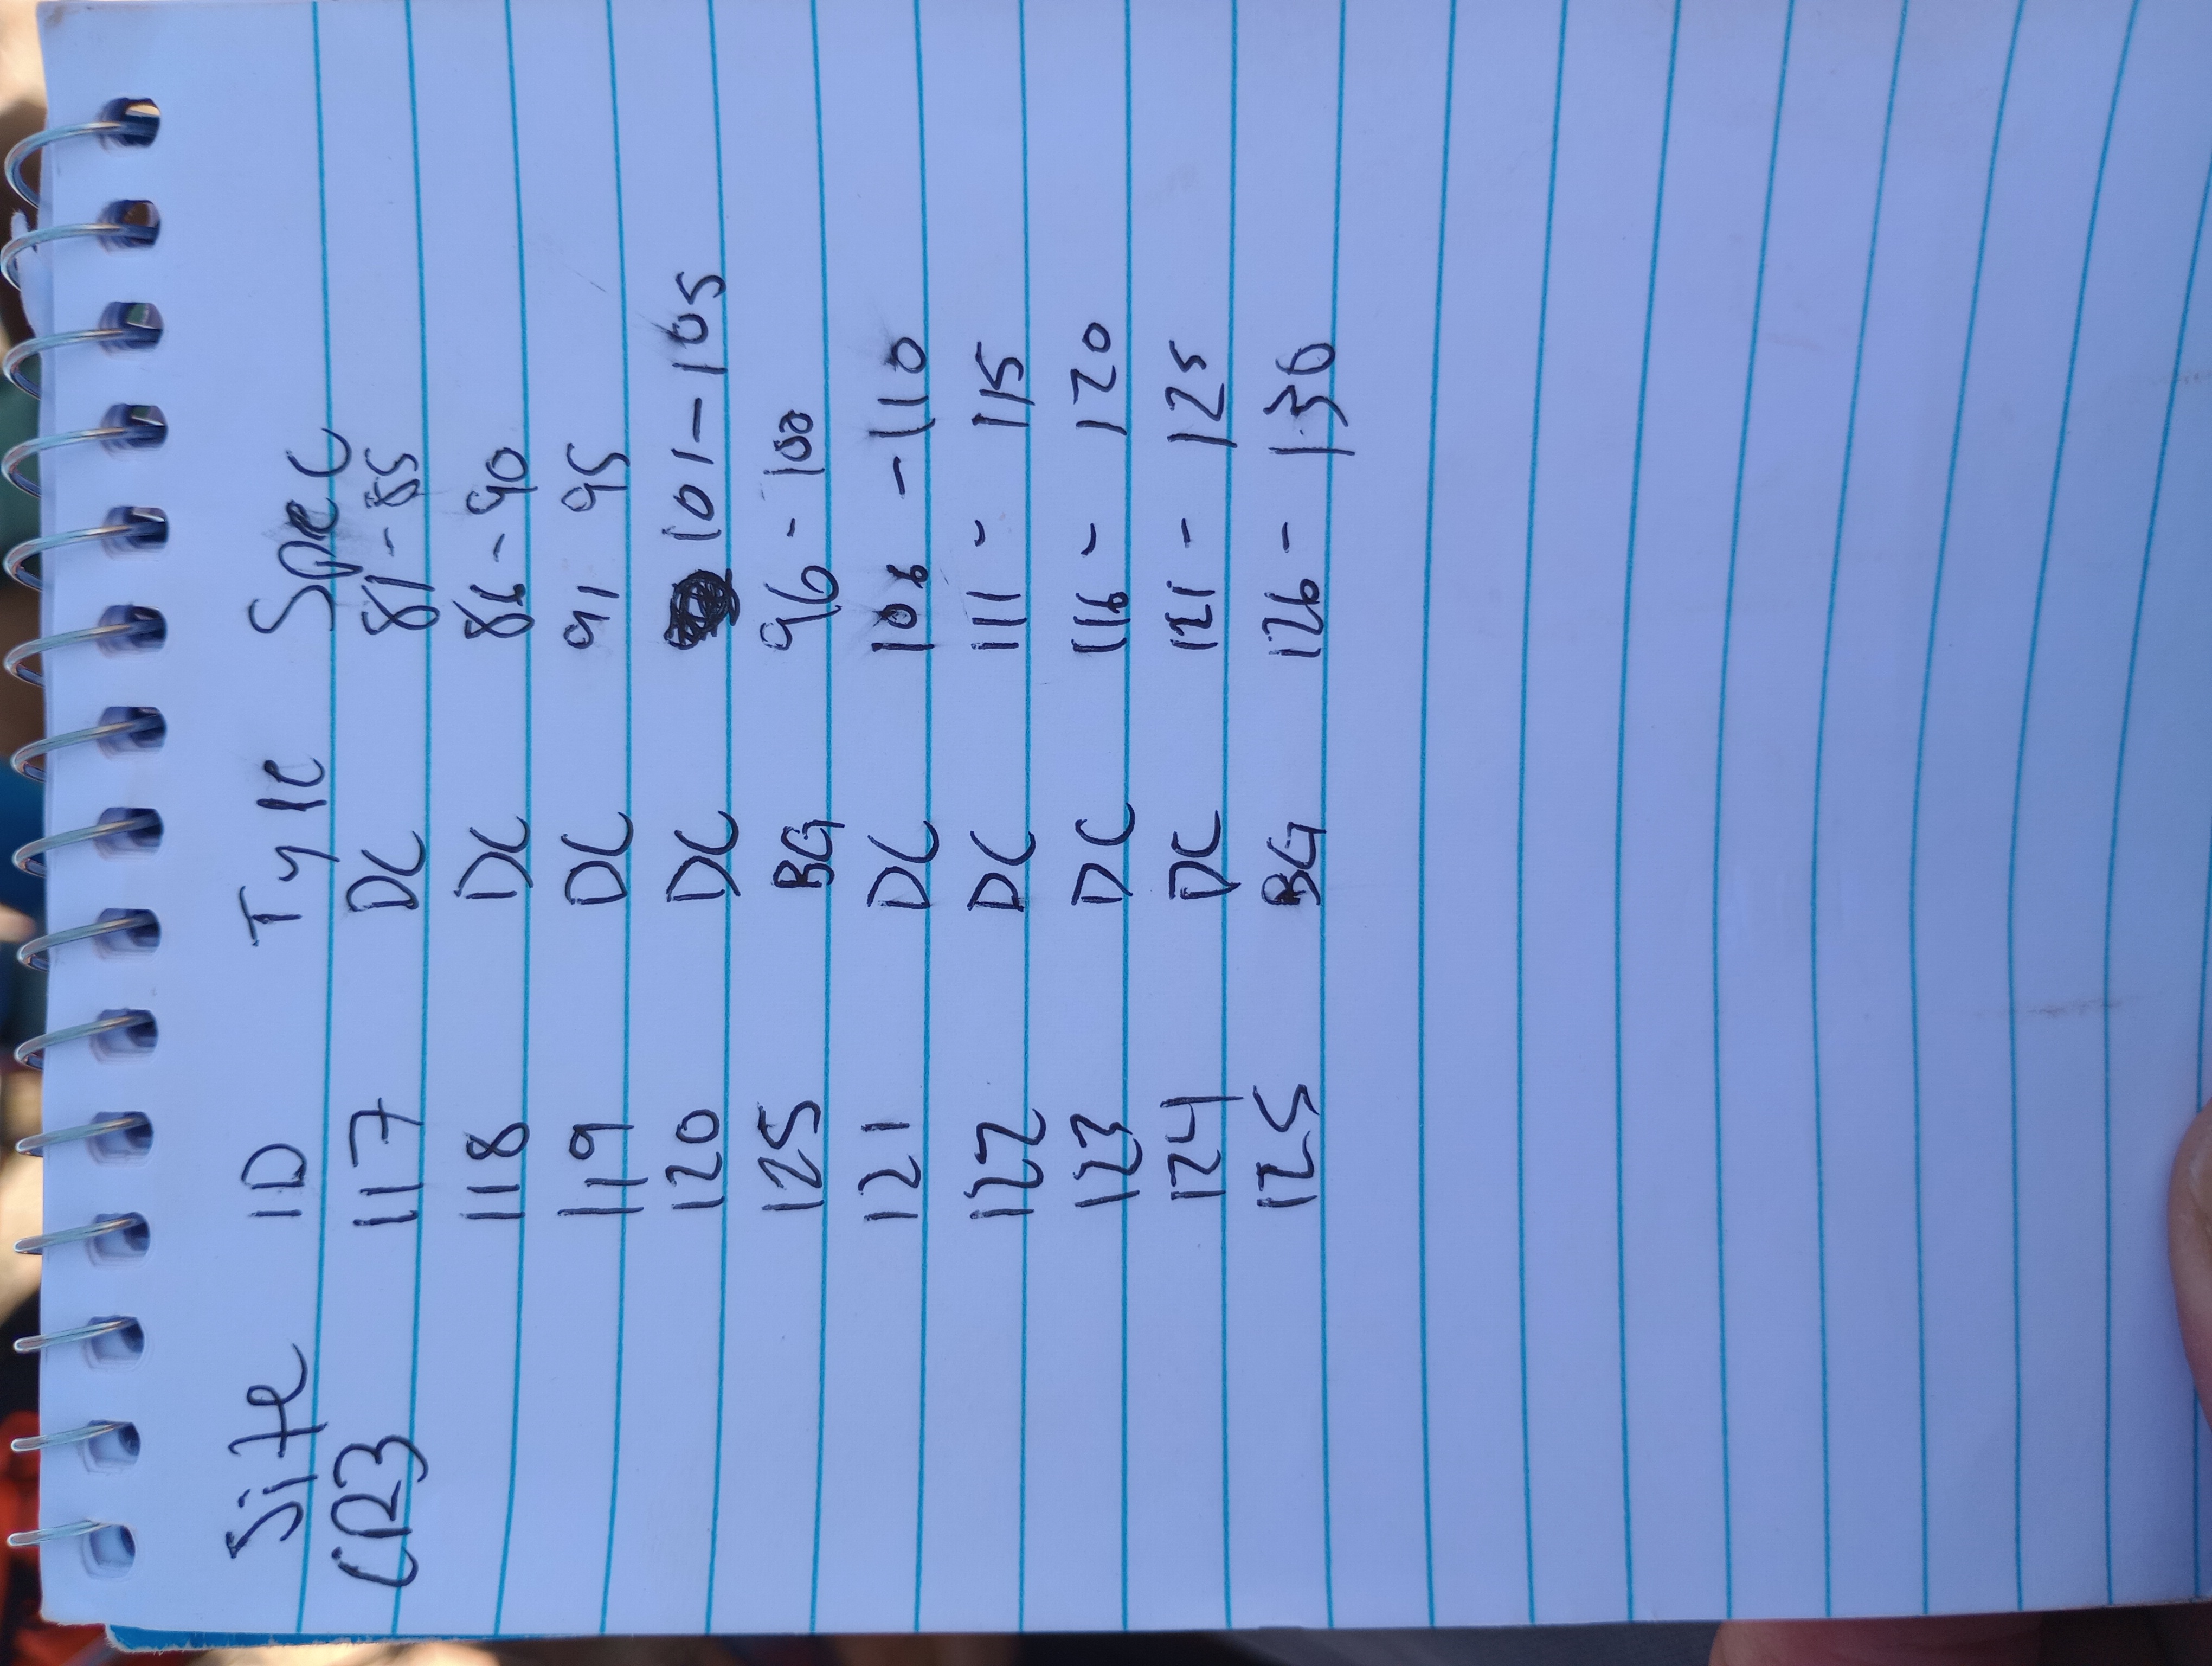 Site ID Type Spec
CR3 117 DC 81-85
118 DC 86-90
119 DC 91 95
120 DC 101-105
125 BG 96-100
121 DC 106-110
122 DC 111-115
123 DC 116-120
124 DC 121-125
125 BG 126-130